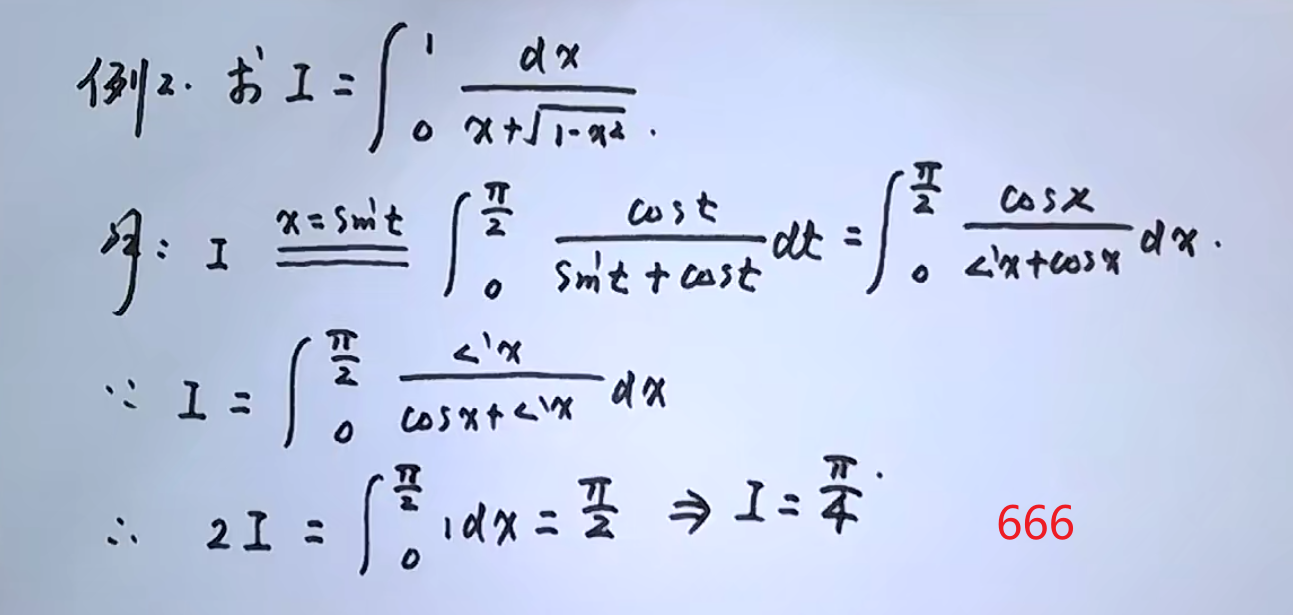 例2. 求 I = ∫₀¹ dx / (x+√(1-x²)).
解: I \xlongequal{x=sint} ∫₀^{π/2} cost / (sint + cost) dt = ∫₀^{π/2} cosx / (sinx+cosx) dx.
∵ I = ∫₀^{π/2} sinx / (cosx+sinx) dx
∴ 2I = ∫₀^{π/2} 1dx = π/2 ⇒ I = π/4.
666